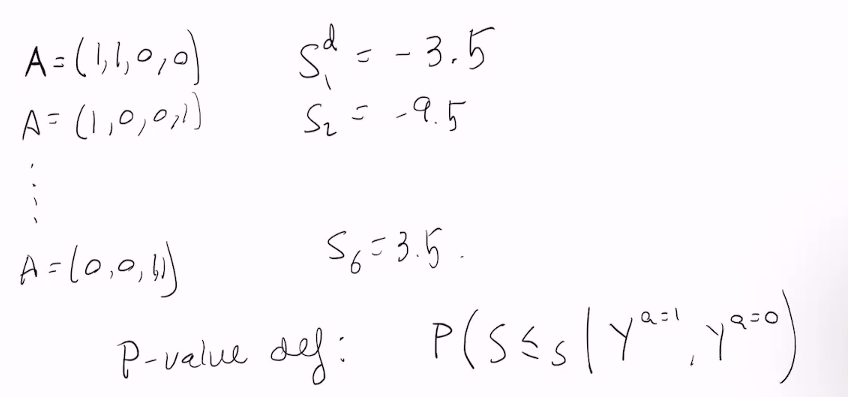 A=(1,1,0,0) S₁ᵈ = -3.5
A=(1,0,0,1) S₂ = -9.5
⋮
A=(0,0,1,1) S₆=3.5.
P-value def: P(S≤s | Yᵃ⁼¹, Yᵃ⁼⁰)